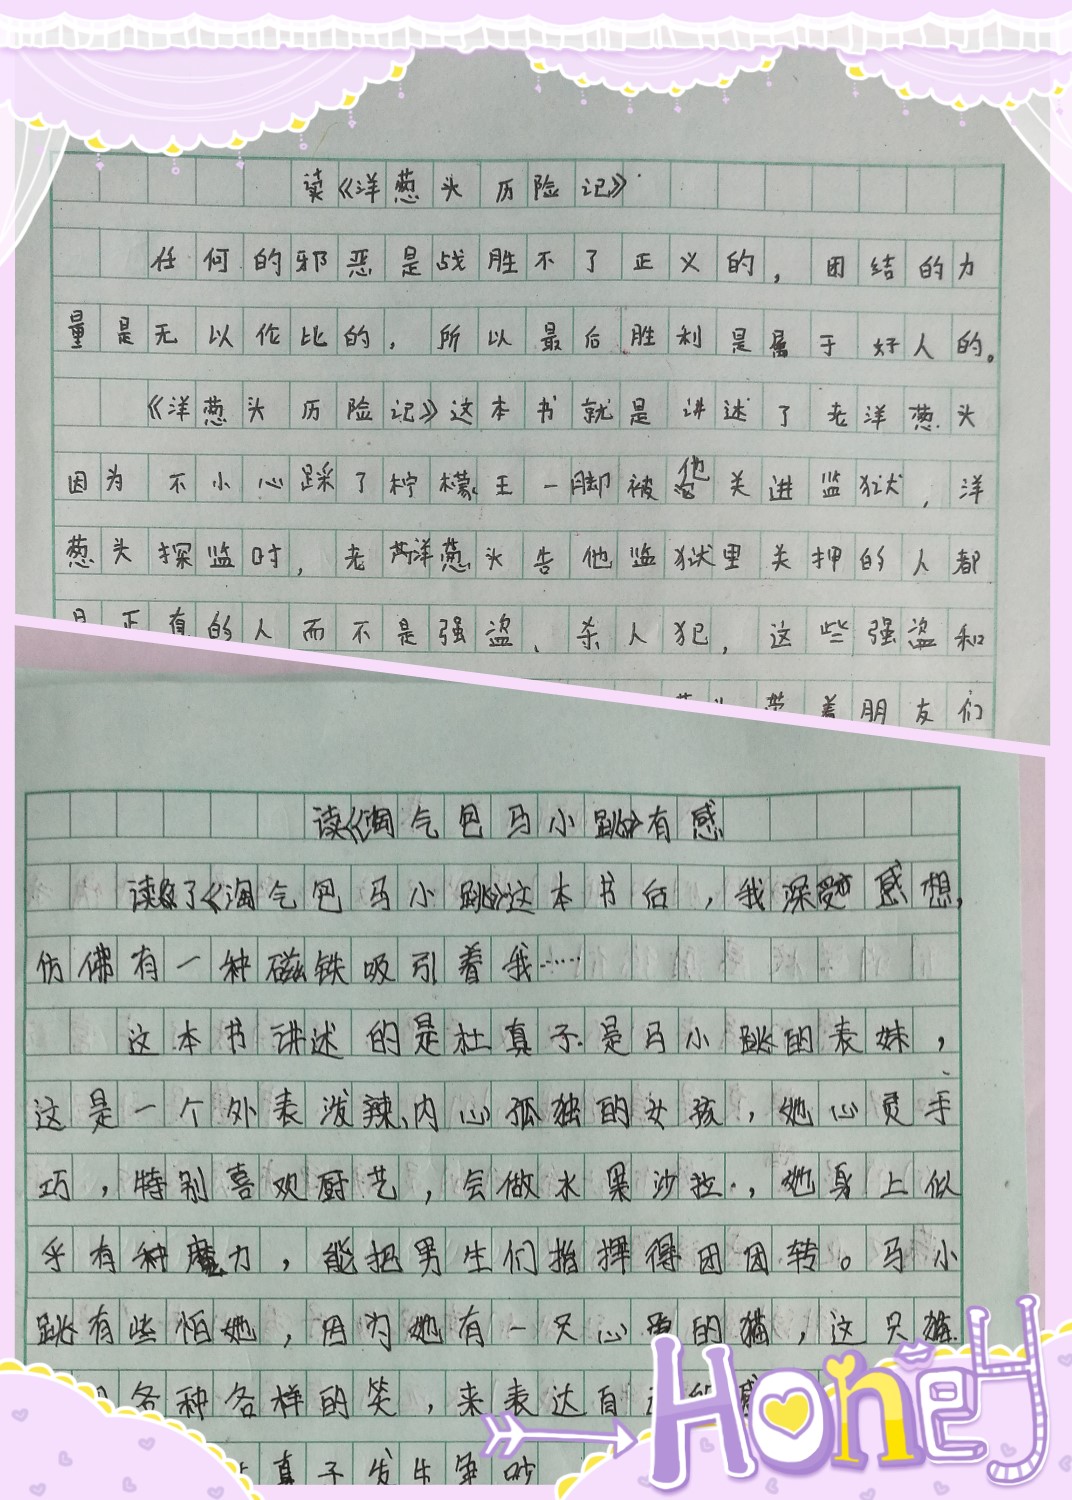 读《洋葱头历险记》
任何的邪恶是战胜不了正义的，团结的力
量是无以伦比的，所以最后胜利是属于好人的。
《洋葱头历险记》这本书就是讲述了老洋葱头
因为不小心踩了柠檬王一脚被他关进监狱，洋
葱头探监时，老洋葱头告他监狱里关押的人都
是正直的人而不是强盗、杀人犯，这些强盗和
着朋友们
读《淘气包马小跳》有感
读了《淘气包马小跳》这本书后，我深受感想，
仿佛有一种磁铁吸引着我……
这本书讲述的是杜真子是马小跳的表妹，
这是一个外表泼辣、内心孤独的女孩，她心灵手
巧，特别喜欢厨艺，会做水果沙拉，她身上似
乎有种魔力，能把男生们指挥得团团转。马小
跳有些怕她，因为她有一只心爱的猫，这只猫
各种各样的笑，来表达自
真子发生争吵
Honey